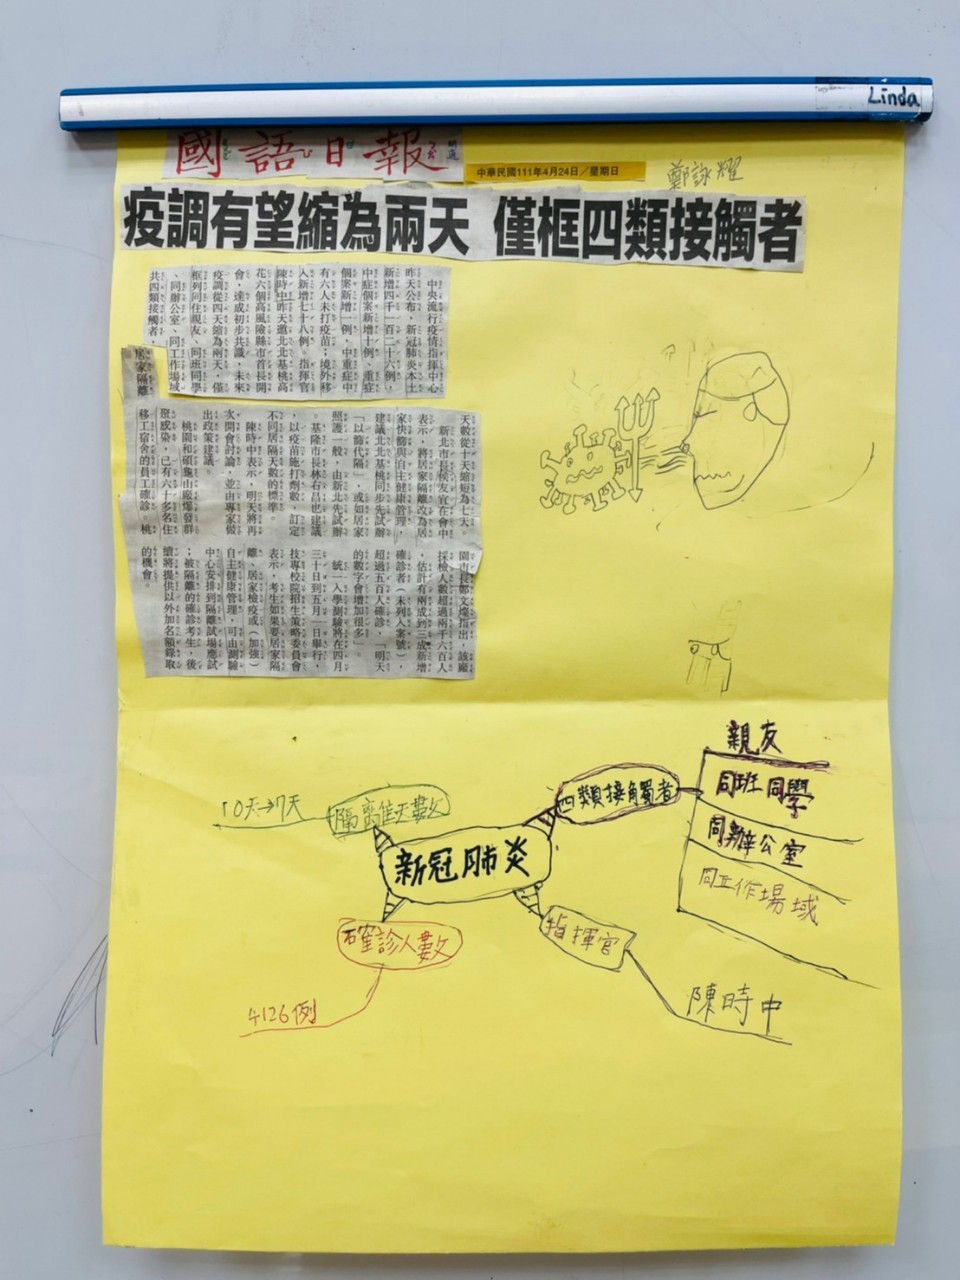 Linda
國語日報
中華民國111年4月24日／星期日
鄭詠耀
疫調有望縮為兩天 僅框四類接觸者
中央流行疫情指揮中心
昨天公布，新冠肺炎本土
新增四千一百二十六例，
中症個案新增十例、重症
個案新增一例，中重症中
有六人未打疫苗；境外移
入新增七十八例。指揮官
陳時中昨天邀北北基桃高
花六個高風險縣市首長開
會，達成初步共識，未來
疫調從四天縮為兩天，僅
框列同住親友、同班同學
、同辦公室、同工作場域
共四類接觸者，
居家隔離
天數從十天縮短為七天。
新北市長侯友宜在會中
表示，將居家隔離改為居
家快篩與自主健康管理，
建議北北基桃同步先試辦
「以篩代隔」，或如居家
照護一般，由新北先試辦
。基隆市長林右昌也建議
，以疫苗施打劑數，訂定
不同居隔天數的標準。
陳時中表示，明天將再
次開會討論，並由專家做
出政策建議。
桃園和碩龜山廠爆發群
聚感染，已有六十多名住
移工宿舍的員工確診。桃
園市長鄭文燦指出，該廠
採檢人數超過兩千六百人
，估計有兩成到三成新增
確診者（未列入案號），
超過五百人確診，「明天
的數字會增加很多」。
統一入學測驗將在四月
三十日到五月一日舉行，
技專校院招生策略委員會
表示，考生如果要居家隔
離、居家檢疫或（加強）
自主健康管理，可由測驗
中心安排到隔離試場應試
；被隔離的確診考生，後
續將提供以外加名額錄取
的機會。
新冠肺炎
隔離天數
10天→7天
四類接觸者
親友
同班同學
同辦公室
同工作場域
確診人數
4126例
指揮官
陳時中